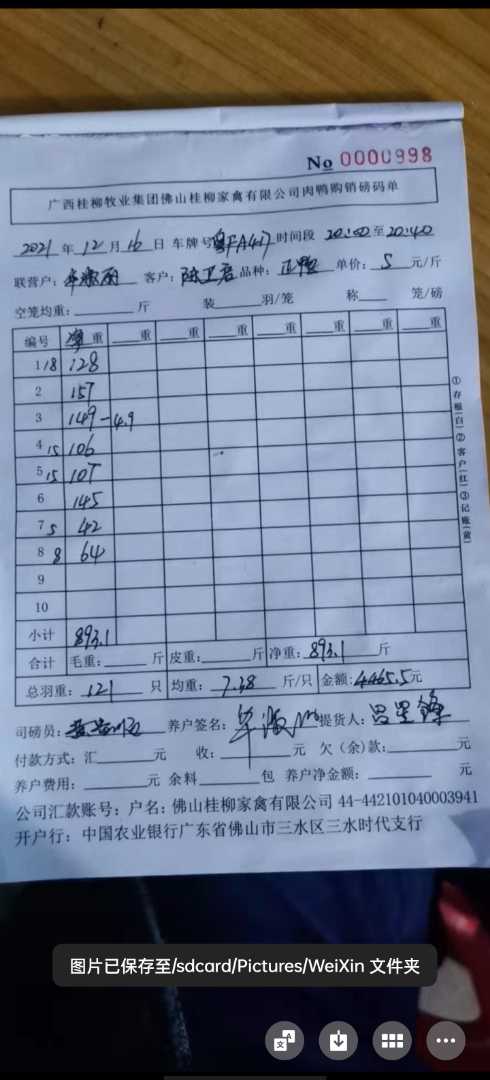 No 0000998
广西桂柳牧业集团佛山桂柳家禽有限公司肉鸭购销磅码单
2021 年 12 月 16 日 车牌号 粤FA417 时间段 20:00 至 20:40
联营户: 客户: 陈卫君 品种: 正鸭 单价: 5 元/斤
空笼均重: 斤 装 羽/笼 称 笼/磅
编号 净重 重 重 重 重 重 重 重
1 18 128
2 157
3 149-4.9
4 15 106
5 15 107
6 145
7 5 42
8 8 64
9
10
小计 893.1
合计 毛重: 斤 皮重: 斤 净重: 893.1 斤
总羽重: 121 只 均重: 7.38 斤/只 金额: 4465.5元
司磅员: 养户签名: 提货人: 吕星锋
付款方式: 汇 元 收: 元 欠(余)款: 元
养户费用: 元 余料 包 养户净金额: 元
公司汇款账号: 户名: 佛山桂柳家禽有限公司 44-442101040003941
开户行: 中国农业银行广东省佛山市三水区三水时代支行
①存根(白)②客户(红)③记账(黄)
图片已保存至/sdcard/Pictures/WeiXin 文件夹